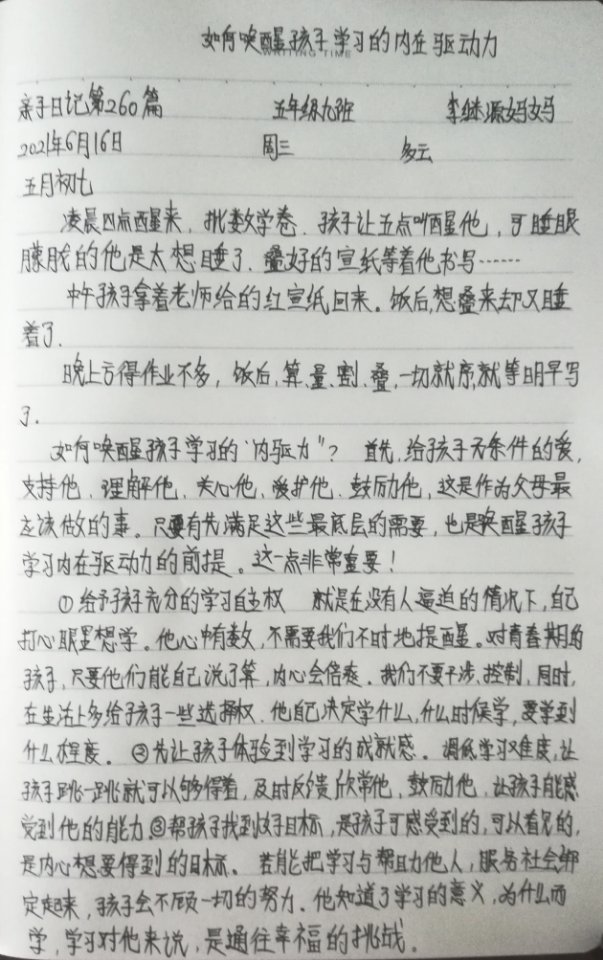 如何唤醒孩子学习的内在驱动力
WRITING TIME
亲子日记第260篇 五年级九班 李继源妈妈
2021年6月16日 周三 多云
五月初七
凌晨四点醒来，批数学卷．孩子让五点叫醒他，可睡眼
朦胧的他是太想睡了．叠好的宣纸等着他书写……
中午孩子拿着老师给的红宣纸回来。饭后，想叠来却又睡
着了．
晚上亏得作业不多，饭后，算、量、割、叠，一切就序，就等明早写
了．
如何唤醒孩子学习的"内驱力"？ 首先，给孩子无条件的爱，
支持他、理解他、关心他、爱护他、鼓励他，这是作为父母最
应该做的事。只要有先满足这些最底层的需要，也是唤醒孩子
学习内在驱动力的前提。这一点非常重要！
①给予孩子充分的学习自主权 就是在没有人逼迫的情况下，自己
打心眼里想学。他心中有数，不需要我们不时地提醒。对青春期的
孩子，只要他们能自己说了算，内心会倍爽．我们不要干涉、控制，同时，
在生活上多给孩子一些选择权．他自己决定学什么，什么时候学，要学到
什么程度。②先让孩子体验到学习的成就感。调低学习难度，让
孩子跳一跳就可以够得着，及时反馈欣赏他，鼓励他，让孩子能感
受到他的能力③帮孩子找到好目标，是孩子可感受到的，可以看见的，
是内心想要得到的目标。若能把学习与帮助他人，服务社会绑
定起来，孩子会不顾一切的努力．他知道了学习的意义，为什么而
学，学习对他来说，是通往幸福的挑战．